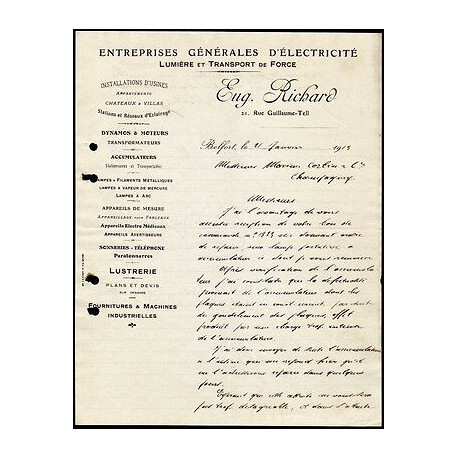 ENTREPRISES GÉNÉRALES D'ÉLECTRICITÉ
LUMIÈRE ET TRANSPORT DE FORCE
Eug. Richard
21, Rue Guillaume-Tell
INSTALLATIONS D'USINES
APPARTEMENTS
CHATEAUX & VILLAS
Stations et Réseaux d'Éclairage
DYNAMOS & MOTEURS
TRANSFORMATEURS
ACCUMULATEURS
Stationnaires et Transportables
LAMPES A FILAMENTS MÉTALLIQUES
LAMPES A VAPEUR DE MERCURE
LAMPES A ARC
APPAREILS DE MESURE
APPAREILLAGE POUR TABLEAUX
Appareils Electro Médicaux
APPAREILS AVERTISSEURS
SONNERIES - TÉLÉPHONE
Paratonnerres
LUSTRERIE
PLANS ET DEVIS
SUR DEMANDE
FOURNITURES & MACHINES
INDUSTRIELLES
Belfort, le 21 Janvier 1913
Messieurs
Champagney
Messieurs
J'ai l'avantage de vous
accuser reception de votre bon de
commande me donnant ordre
de refaire une lampe portative à
accumulateur dont je vous remercie
Après vérification de l'accumula
teur j'ai constaté que la défectuosité
provenait de l'accumulateur dont les
plaques étaient en court circuit, par suite
de gondolement des plaques, effet
produit par une charge trop intense
de l'accumulateur
J'ai donc envoyé de suite l'accumulateur
à l'usine qui me répond bien qu'il
en l'accumulateur refaire dans quelques
jours.
Espérant que cette attente ne vous sera
pas trop désagréable, et dans l'attente